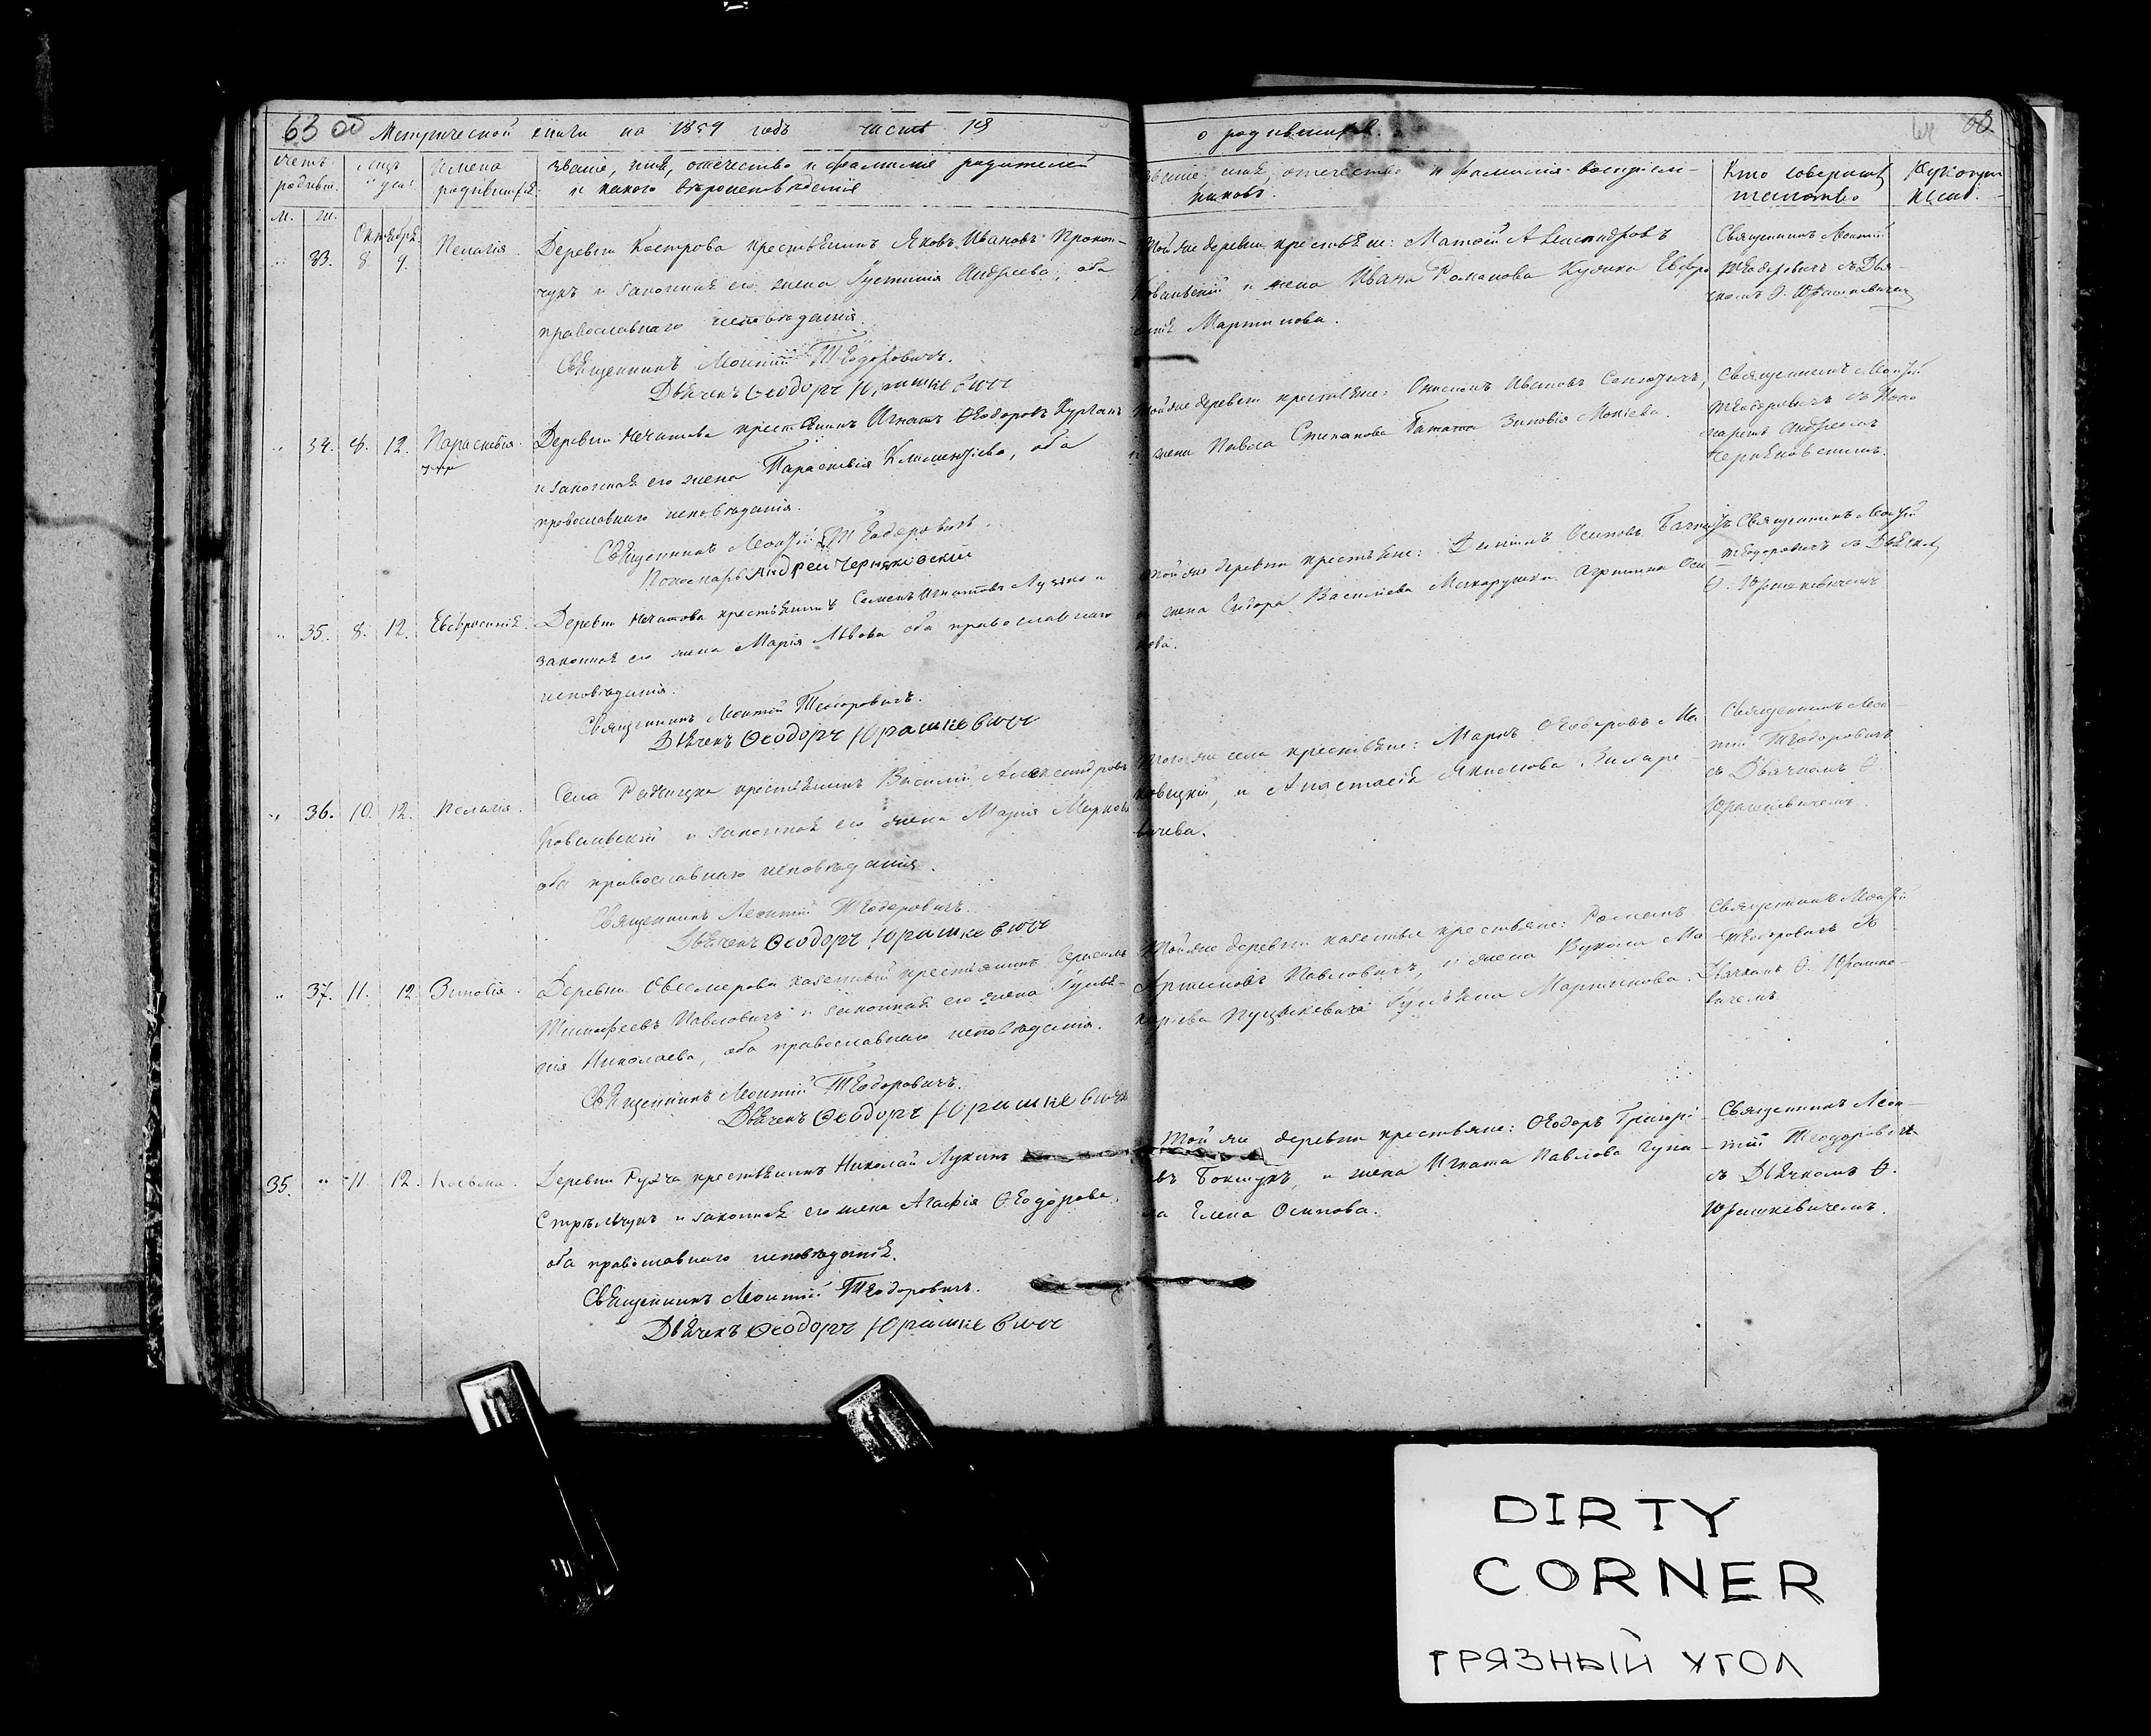 63 об Метрической книги на 1859 годъ часть
о родившихся.
Счетъ родивш.
Мсцъ и дни.
Имена родившихся.
Званіе, имя, отчество и фамилія родителей
и какого вѣроисповѣданія
Званіе, имя, отчество и фамилія воспріем-
никовъ.
Кто совершалъ
таинство
М. Ж.
Октября
33. 8. 9. Пелагія.
Деревни Кострова крестьянинъ Яковъ Ивановъ Прокоп-
чукъ и законная его жена Іустинія Андреева, оба
православнаго исповѣданія.
Священникъ Леонтій Теодоровичъ.
Дьячекъ Ѳеодоръ Юрашкевичъ
Той же деревни крестьяне: Матѳей Александровъ
и жена Ивана Романова Кулика Евфро
Мартинова.
Священникъ Леонтій
Теодоровичъ съ Дья-
чкомъ Ѳ. Юрашкевичемъ
34. 8. 12. Параскевія.
Деревни Нечатова крестьянинъ Игнатъ Ѳеодоровъ Курганъ
и законная его жена Параскевія Климентіева, оба
православнаго исповѣданія.
Священникъ Леонтій Теодоровичъ.
Пономарь Андрей Черняковскій
Той же деревни крестьяне: Ивановъ
и жена Павла Степанова Зиновія Мокіева.
Священникъ Леонтій
Теодоровичъ съ Поно
маремъ Андреемъ
Черняковскимъ.
35. 8. 12. Евфросинія.
Деревни Нечатова крестьянинъ Семенъ Игнатовъ и
законная его жена Марія Львова оба православнаго
исповѣданія.
Священникъ Леонтій Теодоровичъ.
Дьячекъ Ѳеодоръ Юрашкевичъ
Той же деревни крестьяне: Осиповъ
и жена Сидора Василіева Агрипина Оси
пова.
Священникъ Леонтій
Теодоровичъ съ Дьячкомъ
Ѳ. Юрашкевичемъ
36. 10. 12. Пелагія.
Села крестьянинъ Василій Александровъ
Ковальскій и законная его жена Марія Маркова
оба православнаго исповѣданія.
Священникъ Леонтій Теодоровичъ.
Дьячекъ Ѳеодоръ Юрашкевичъ
Того же села крестьяне: Маркъ Ѳеодоровъ
и Анастасія Якимова
Священникъ Леон-
тій Теодоровичъ
съ Дьячкомъ Ѳ
Юрашкевичемъ.
37. 11. 12. Зиновія.
Деревни казенный крестьянинъ Герасимъ
Тимофеевъ Павловичъ и законная его жена Іуліа-
нія Николаева, оба православнаго исповѣданія.
Священникъ Леонтій Теодоровичъ.
Дьячекъ Ѳеодоръ Юрашкевичъ
Той же деревни казенные крестьяне: Романъ
Павловичъ, и жена Вукола Ма
карьева Мартинова.
Священникъ Леонтій
Теодоровичъ съ
Дьячкомъ Ѳ. Юрашке-
вичемъ
35. 11. 12. Косьма.
Деревни Рудча крестьянинъ Николай Лукинъ
Стрѣльчукъ и законная его жена Агафія Ѳеодорова,
оба православнаго исповѣданія.
Священникъ Леонтій Теодоровичъ.
Дьячекъ Ѳеодоръ Юрашкевичъ
Той же деревни крестьяне: Ѳеодоръ Григорі
евъ и жена Игната Павлова
Елена Осипова.
Священникъ Леон-
тій Теодоровичъ
съ Дьячкомъ Ѳ.
Юрашкевичемъ.
DIRTY
CORNER
ГРЯЗНЫЙ УГОЛ